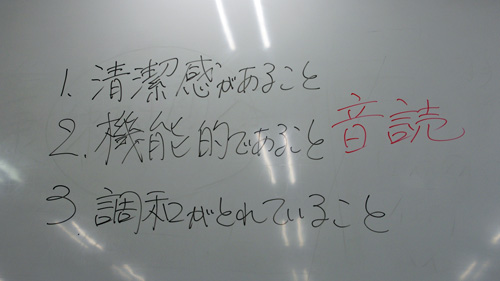 1. 清潔感があること
2. 機能的であること 音読
3. 調和がとれていること